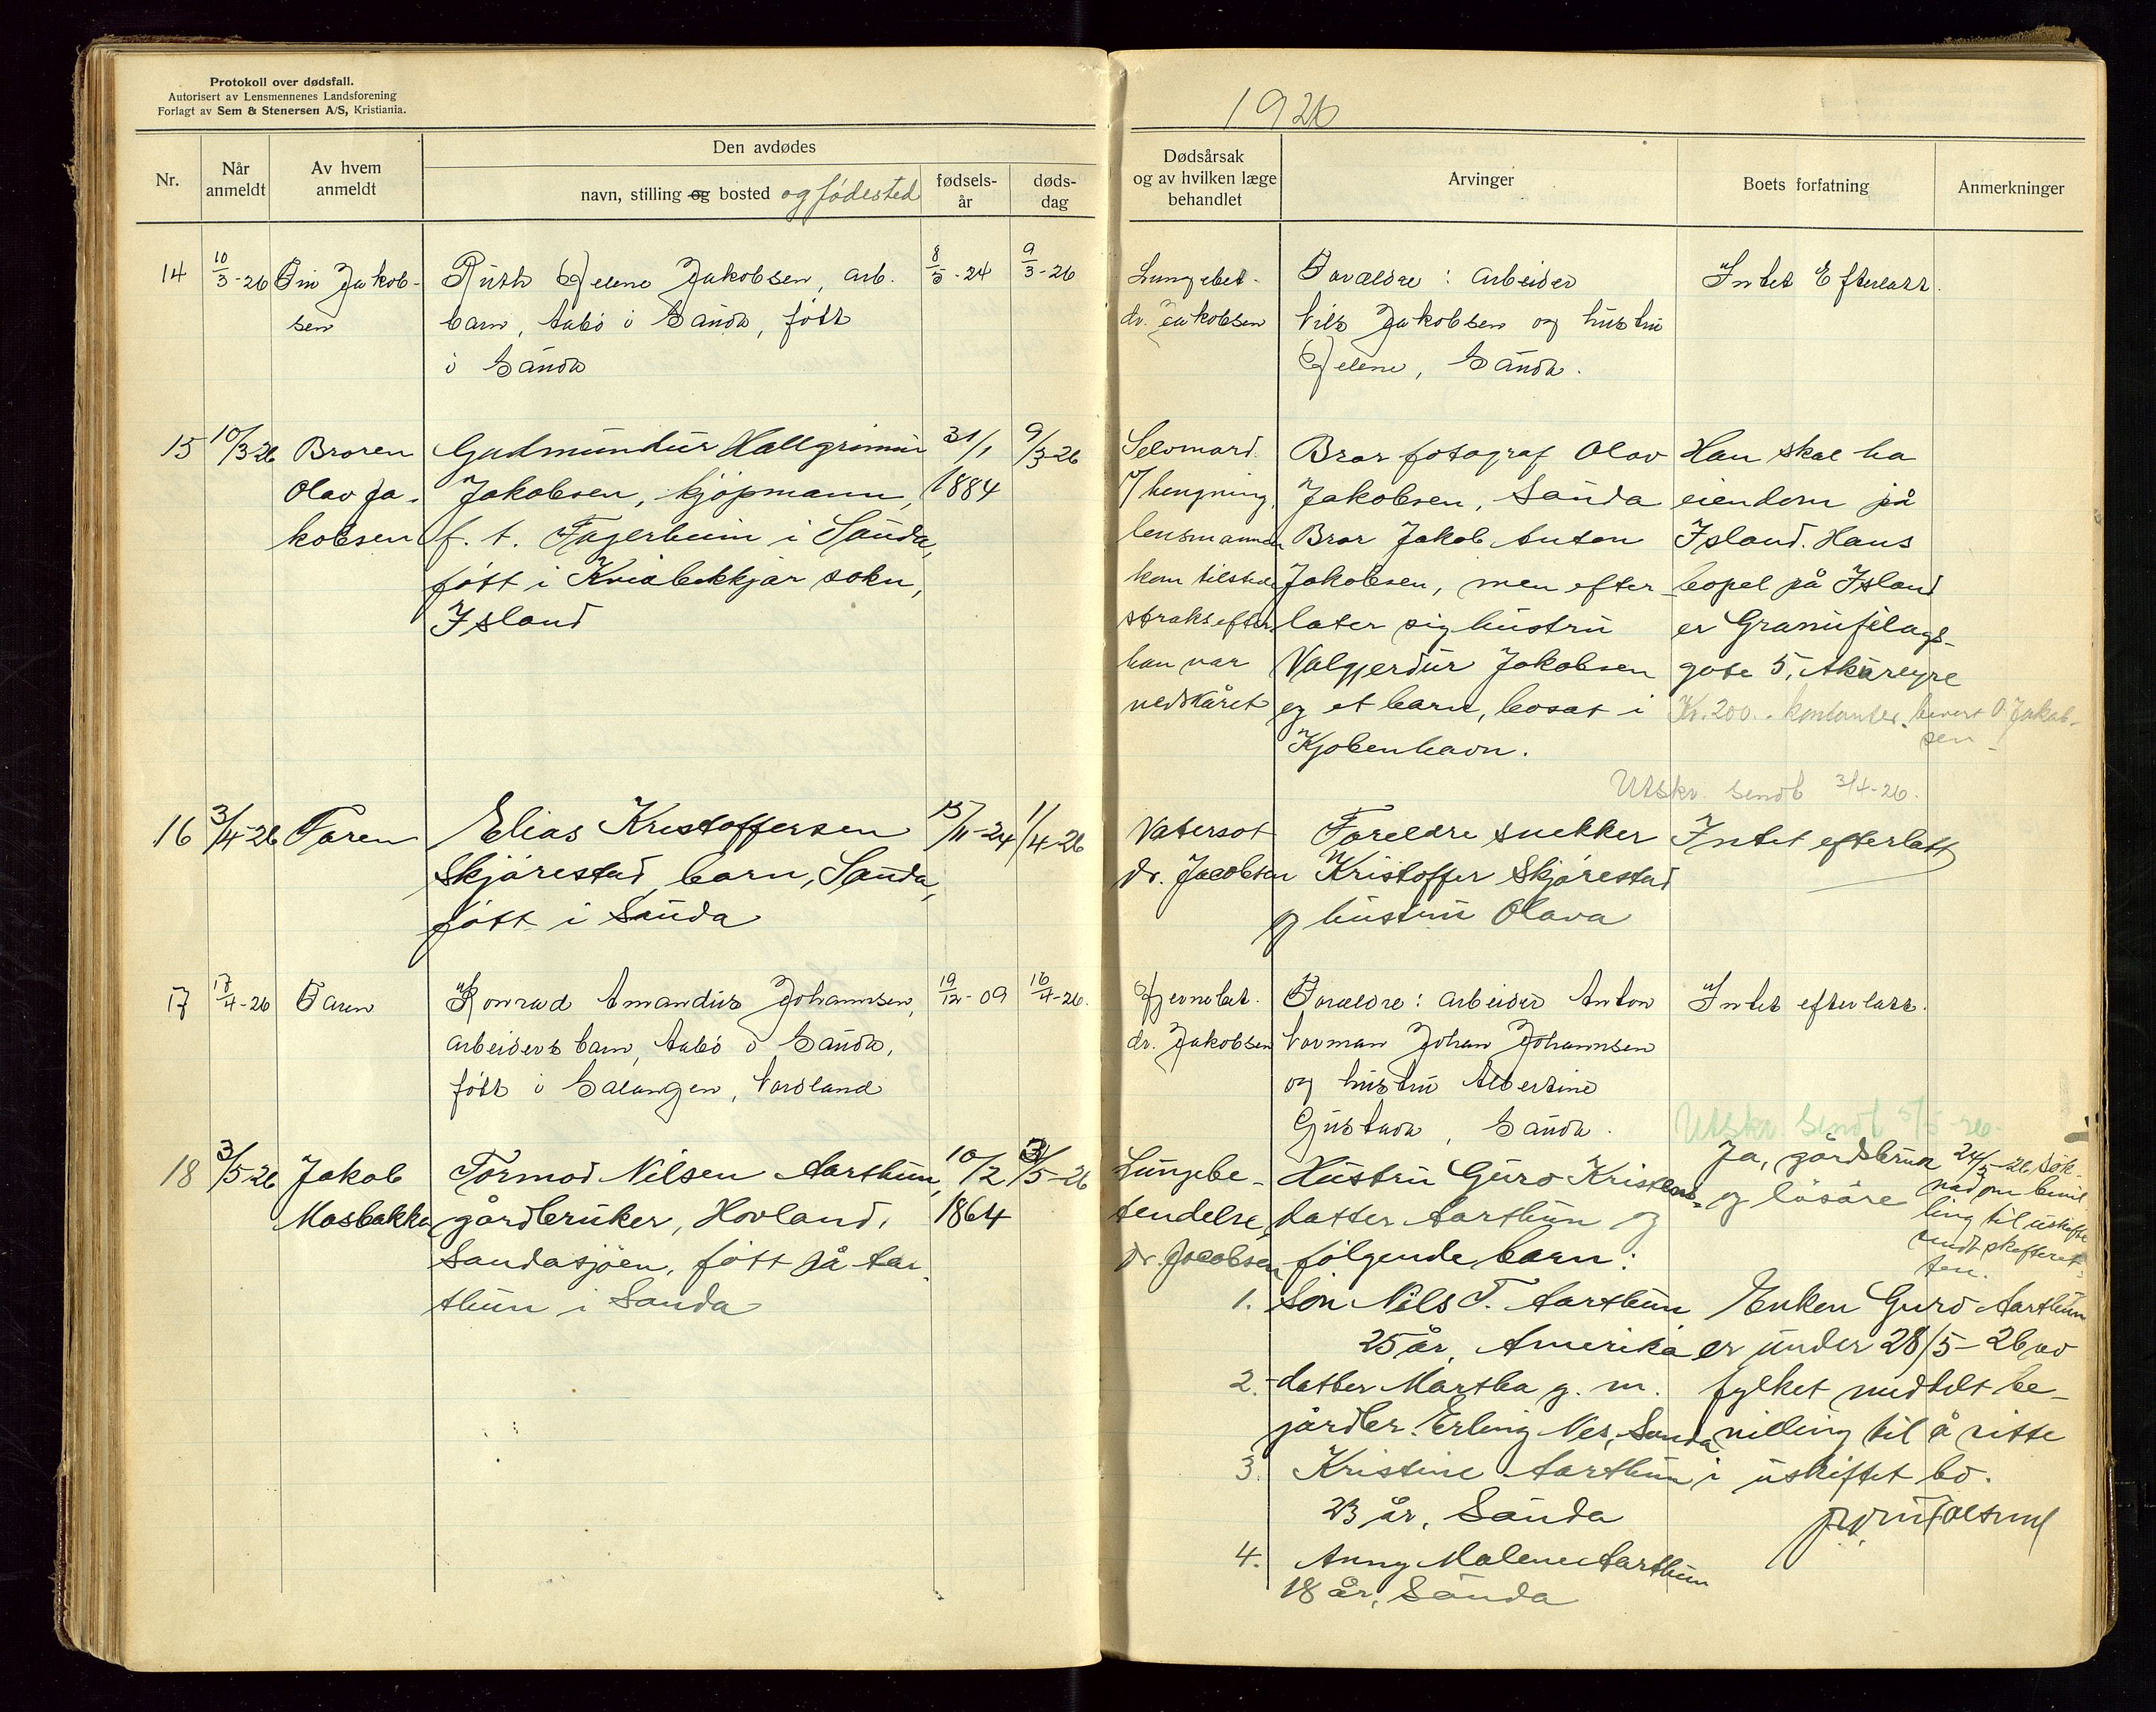 Protokoll over dødsfall.
Autorisert av Lensmennenes Landsforening
Forlagt av Sem & Stenersen A/S, Kristiania.
1926
Nr.
Når
anmeldt
Av hvem
anmeldt
Den avdødes
navn, stilling og bosted og fødested
fødsels-
år
døds-
dag
Dødsårsak
og av hvilken læge
behandlet
Arvinger
Boets forfatning
Anmerkninger
14
10/3-26
Jakob-
sen
Ruth Helene Jakobsen, arb.
barn, Aabö i Sauda, født
i Sauda
8/5-24
9/3-26
Lungebet.
dr. Jakobsen
Forældre: Arbeider
Nils Jakobsen og hustru
Helene, Sauda.
Intet Efterlatt.
15
10/3-26
Broren
Olav Ja-
kobsen
Gudmundur Hallgrimur
Jakobsen, kjøpmann,
f. t. Fagerheim i Sauda,
født i Kviabekkjar sokn,
Island
31/1
1884
9/3-26
Selvmord
v/ hengning,
lensmannen
kom tilstede
straks efter
han var
nedskåret
Bror fotograf Olav
Jakobsen, Sauda
Bror Jakob Anton
Jakobsen, men efter-
later sig hustru
Valgjerdur Jakobsen
og et barn, bosat i
Kjøbenhavn.
Han skal ha
eiendom på
Island. Hans
bopel på Island
er Granufelags-
gate 5, Akureyre
Kr. 200.- kontanter. O. Jakob-
sen
Utskr. sendt 3/4-26.
16
3/4-26
Faren
Elias Kristoffersen
Skjårestad, barn, Sauda,
født i Sauda
15/11-24
1/4-26
Vatersot
Dr. Jacobsen
Foreldre snekker
Kristoffer Skjårestad
og hustru Olava
Intet efterlatt
17
17/4-26
Faren
Konrad Amandus Johannsen,
arbeiders barn, Aabö i Sauda,
født i Salangen, Nordland
19/12-09
16/4-26.
Hjernebet.
dr. Jakobsen
Forældre: arbeider Anton
Norman Johan Johannsen
og hustru Albertine
Gustava, Sauda.
Intet efterlatt.
Utskr. sendt 5/5-26.
18
3/5-26
Jakob
Mosbakka
Tormod Nilsen Aarthun,
gårdbruker, Hovland,
Saudasjöen, født på Aar-
thun i Sauda
10/2
1864
3/5-26
Lungebe-
tendelse,
Dr. Jacobsen
Hustru Guro Kristens-
datter Aarthun og
følgende barn:
1. Sön Nils T. Aarthun
25 år, Amerika
2. datter Martha g. m.
gårdbr. Erling Nes, Sauda
3. Kristine Aarthun
23 år, Sauda
4. Anny Malene Aarthun
18 år, Sauda
Ja, gårdsbruk
og lösöre
24/5-26 søk-
nad om bevil
ling til uskifte
sendt skifteret-
ten.
Enken Guro Aarthun
er under 28/5-26 av
fylket meddelt be-
villing til å sitte
i uskiftet bo.